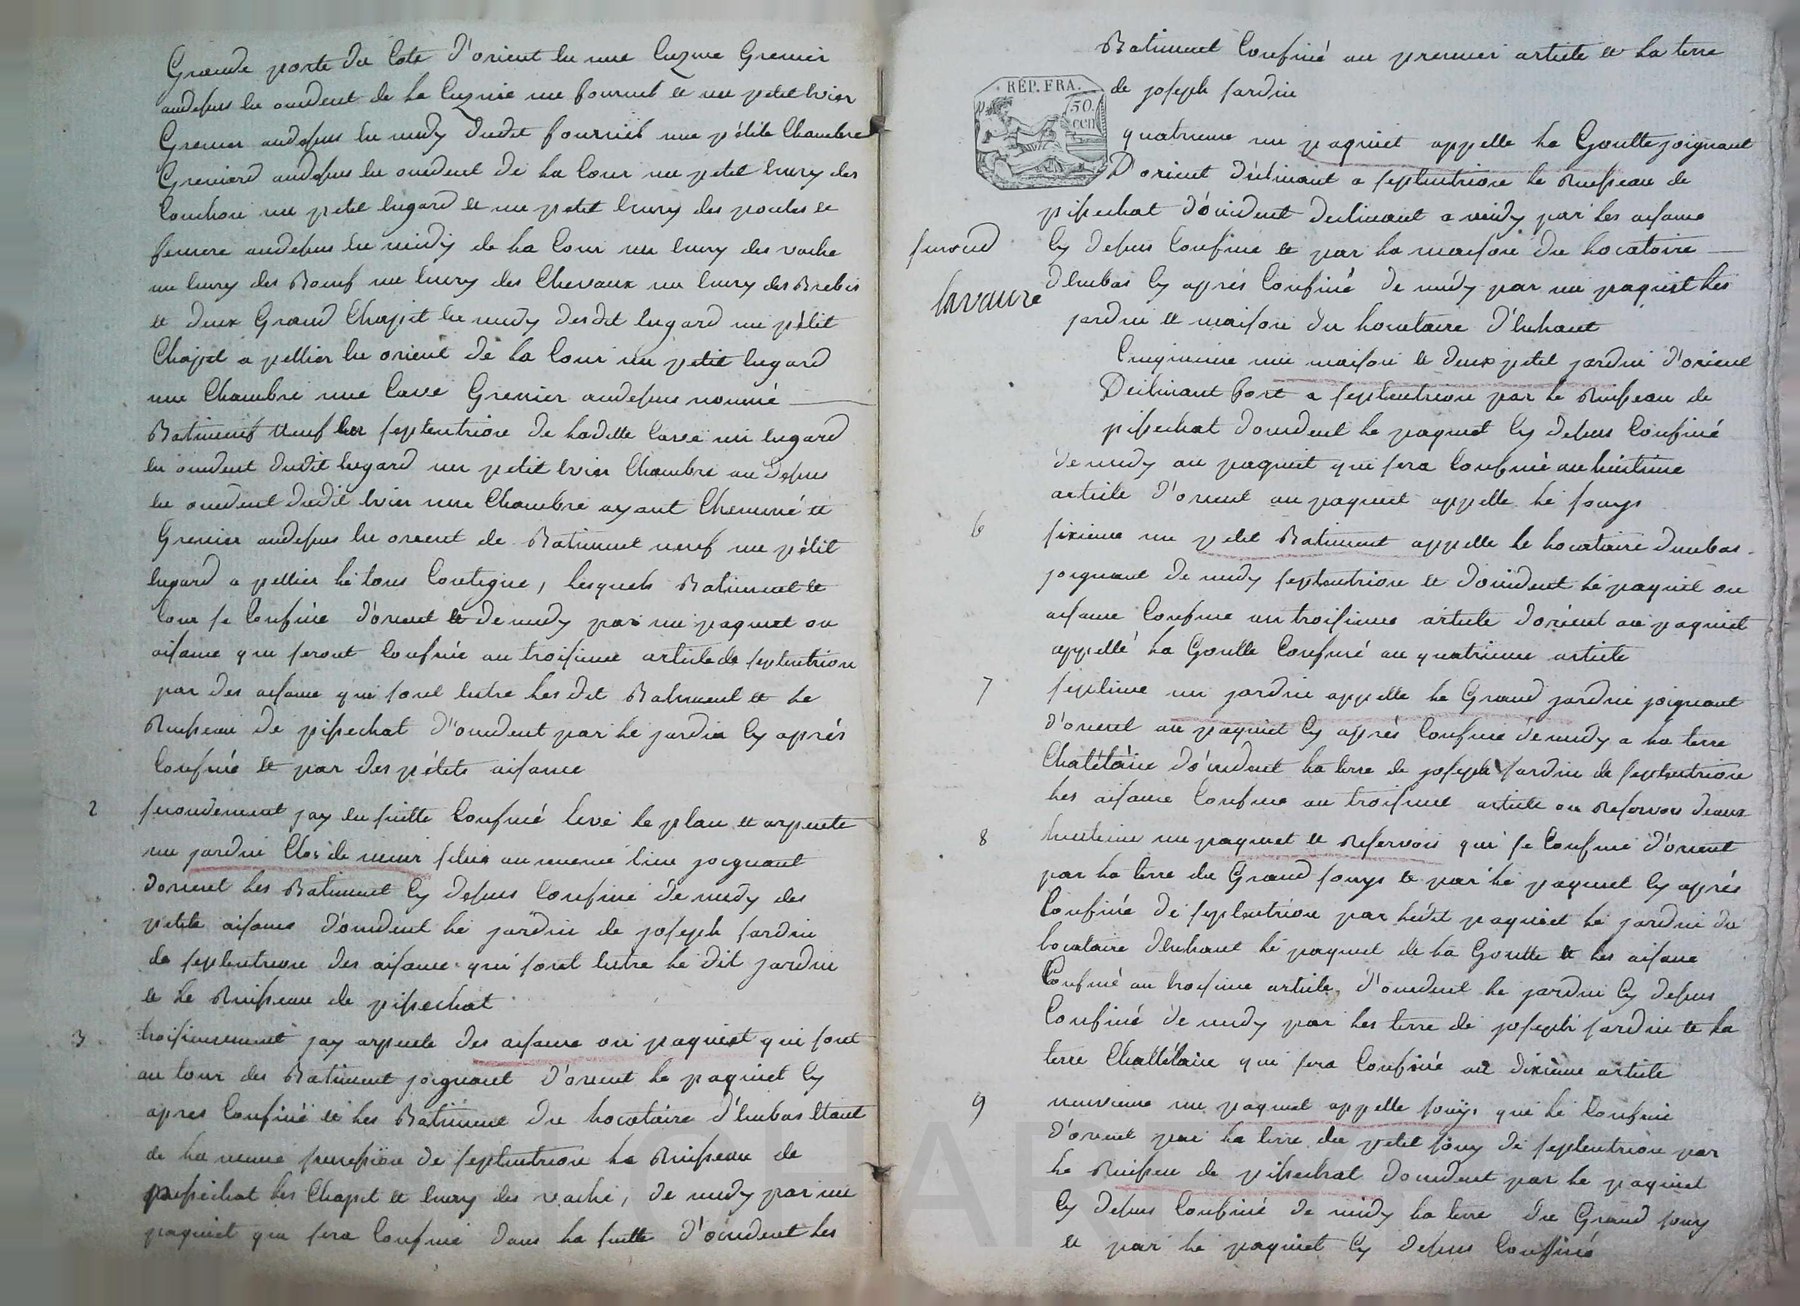 Grande porte du Coté d'orient en une Cuzine Grenier
audessus en occident de la Cuzine un fournil et un petit bvier
Grenier audessus en midy dudit fournil une pétite Chambre
Greniers audessus en occident de la Cour un petit Envry des
Couchon un petit Eugard et un petit Envry des poules et
feniere audessus en midy de la Cour un Envry des vache
un Envry des Boeuf un Envry des Chevaux un Envry des Brebis
et deux Grand Chapit en midy desdit Eugard un pétit
Chapit a pellier en orient de la Cour un petit Eugard
une Chambre une Cave Grenier audessus nommé
Batiment Neuf en septentrion de ladette Cave un Eugard
en occident dudit Eugard un petit bvier Chambre au depus
en occident dudit bvier une Chambre ayant Cheminé et
Grenier audessus en orient de Batiment neuf un pétit
Eugard a pellier le tous Contigue, lesquels Batiment et
Cour se Confine d'orient et de midy par un paquiet ou
aisance qui seront Confinée au troisieme article de septentrion
par des aisance qui sont Entre les dit Batiment et le
Ruisseau de pissechat d'occident par le jardin Cy aprés
Confiné et par des pétite aisance
2 secondement jay en suitte Confiné levé le plan et arpenté
un jardin Clos de meur situé au meme lieu joignant
dorient les Batiment Cy depus Confiné de midy des
petite aisance d'occident le jardin de joseph sardin
de septentrion des aisance qui sont Entre le dit jardin
et le Ruisseau de pissechat
3 troisiemement jay arpenté des aisance ou paquiet qui sont
au tour des Batiment joignant d'orient le paquiet Cy
apres Confiné et les Batiment du locataire d'Enbas Etant
de la meme succession de septentrion le Ruisseau de
pissechat les Chapit et Envry des vache, de midy par un
paquiet qui sera Confiné dans la suitte d'occident les
Batiment Confiné au premier article et la terre
RÉP. FRA.
50
cen
de joseph sardin
quatrieme un paquiet appelle la Goutte joignant
D'orient déclinant a septentrion le Ruisseau de
pissechat d'occident declinant a midy par les aisance
second
Cy depus Confine et par la maison du locataire
lavaure
d'Enbas Cy aprés Confiné de midy par un paquiet les
jardin et maison du locataire d'Enhaut
Cinquieme une maison et deux petit jardin d'orient
Declinant fort a septentrion par le Ruisseau de
pissechat d'occident le paquiet Cy depus Confiné
de midy au paquiet qui sera Confiné au huitiéme
article d'orient au paquiet appelle le souys
6 sixieme un petit Batiment appelle le locataire d'enbas
joignant de midy septentrion et d'occident le paquiet ou
aisance Confine au troisieme article d'orient au paquiet
appellé la Goutte Confiné au quatrieme article
7 septieme un jardin appelle le Grand jardin joignant
d'orient au paquiet Cy aprés Confiné de midy a la terre
Chatélaire d'occident la terre de joseph sardin de septentrion
les aisance Confine au troisieme article ou Reservoir deaux
8 huitieme un paquiet et Reservoir qui se Confine d'orient
par la terre du Grand souys et par le paquiet Cy aprés
Confiné de septentrion par ledit paquiet le jardin du
locataire d'Enhaut le paquiet de la Goutte et les aisance
Confiné au troisieme article, d'occident le jardin Cy depus
Confiné de midy par les terre de joseph sardin et la
terre Chattélaire qui sera Confiné au dixième article
9 neuvieme un paquiet appelle souys qui se Confine
d'orient par la terre du petit souy de septentrion par
le Ruisseu de pissechat d'occident par le paquiet
Cy depus Confiné de midy la terre du Grand souy
et par le paquiet Cy depus Confiné